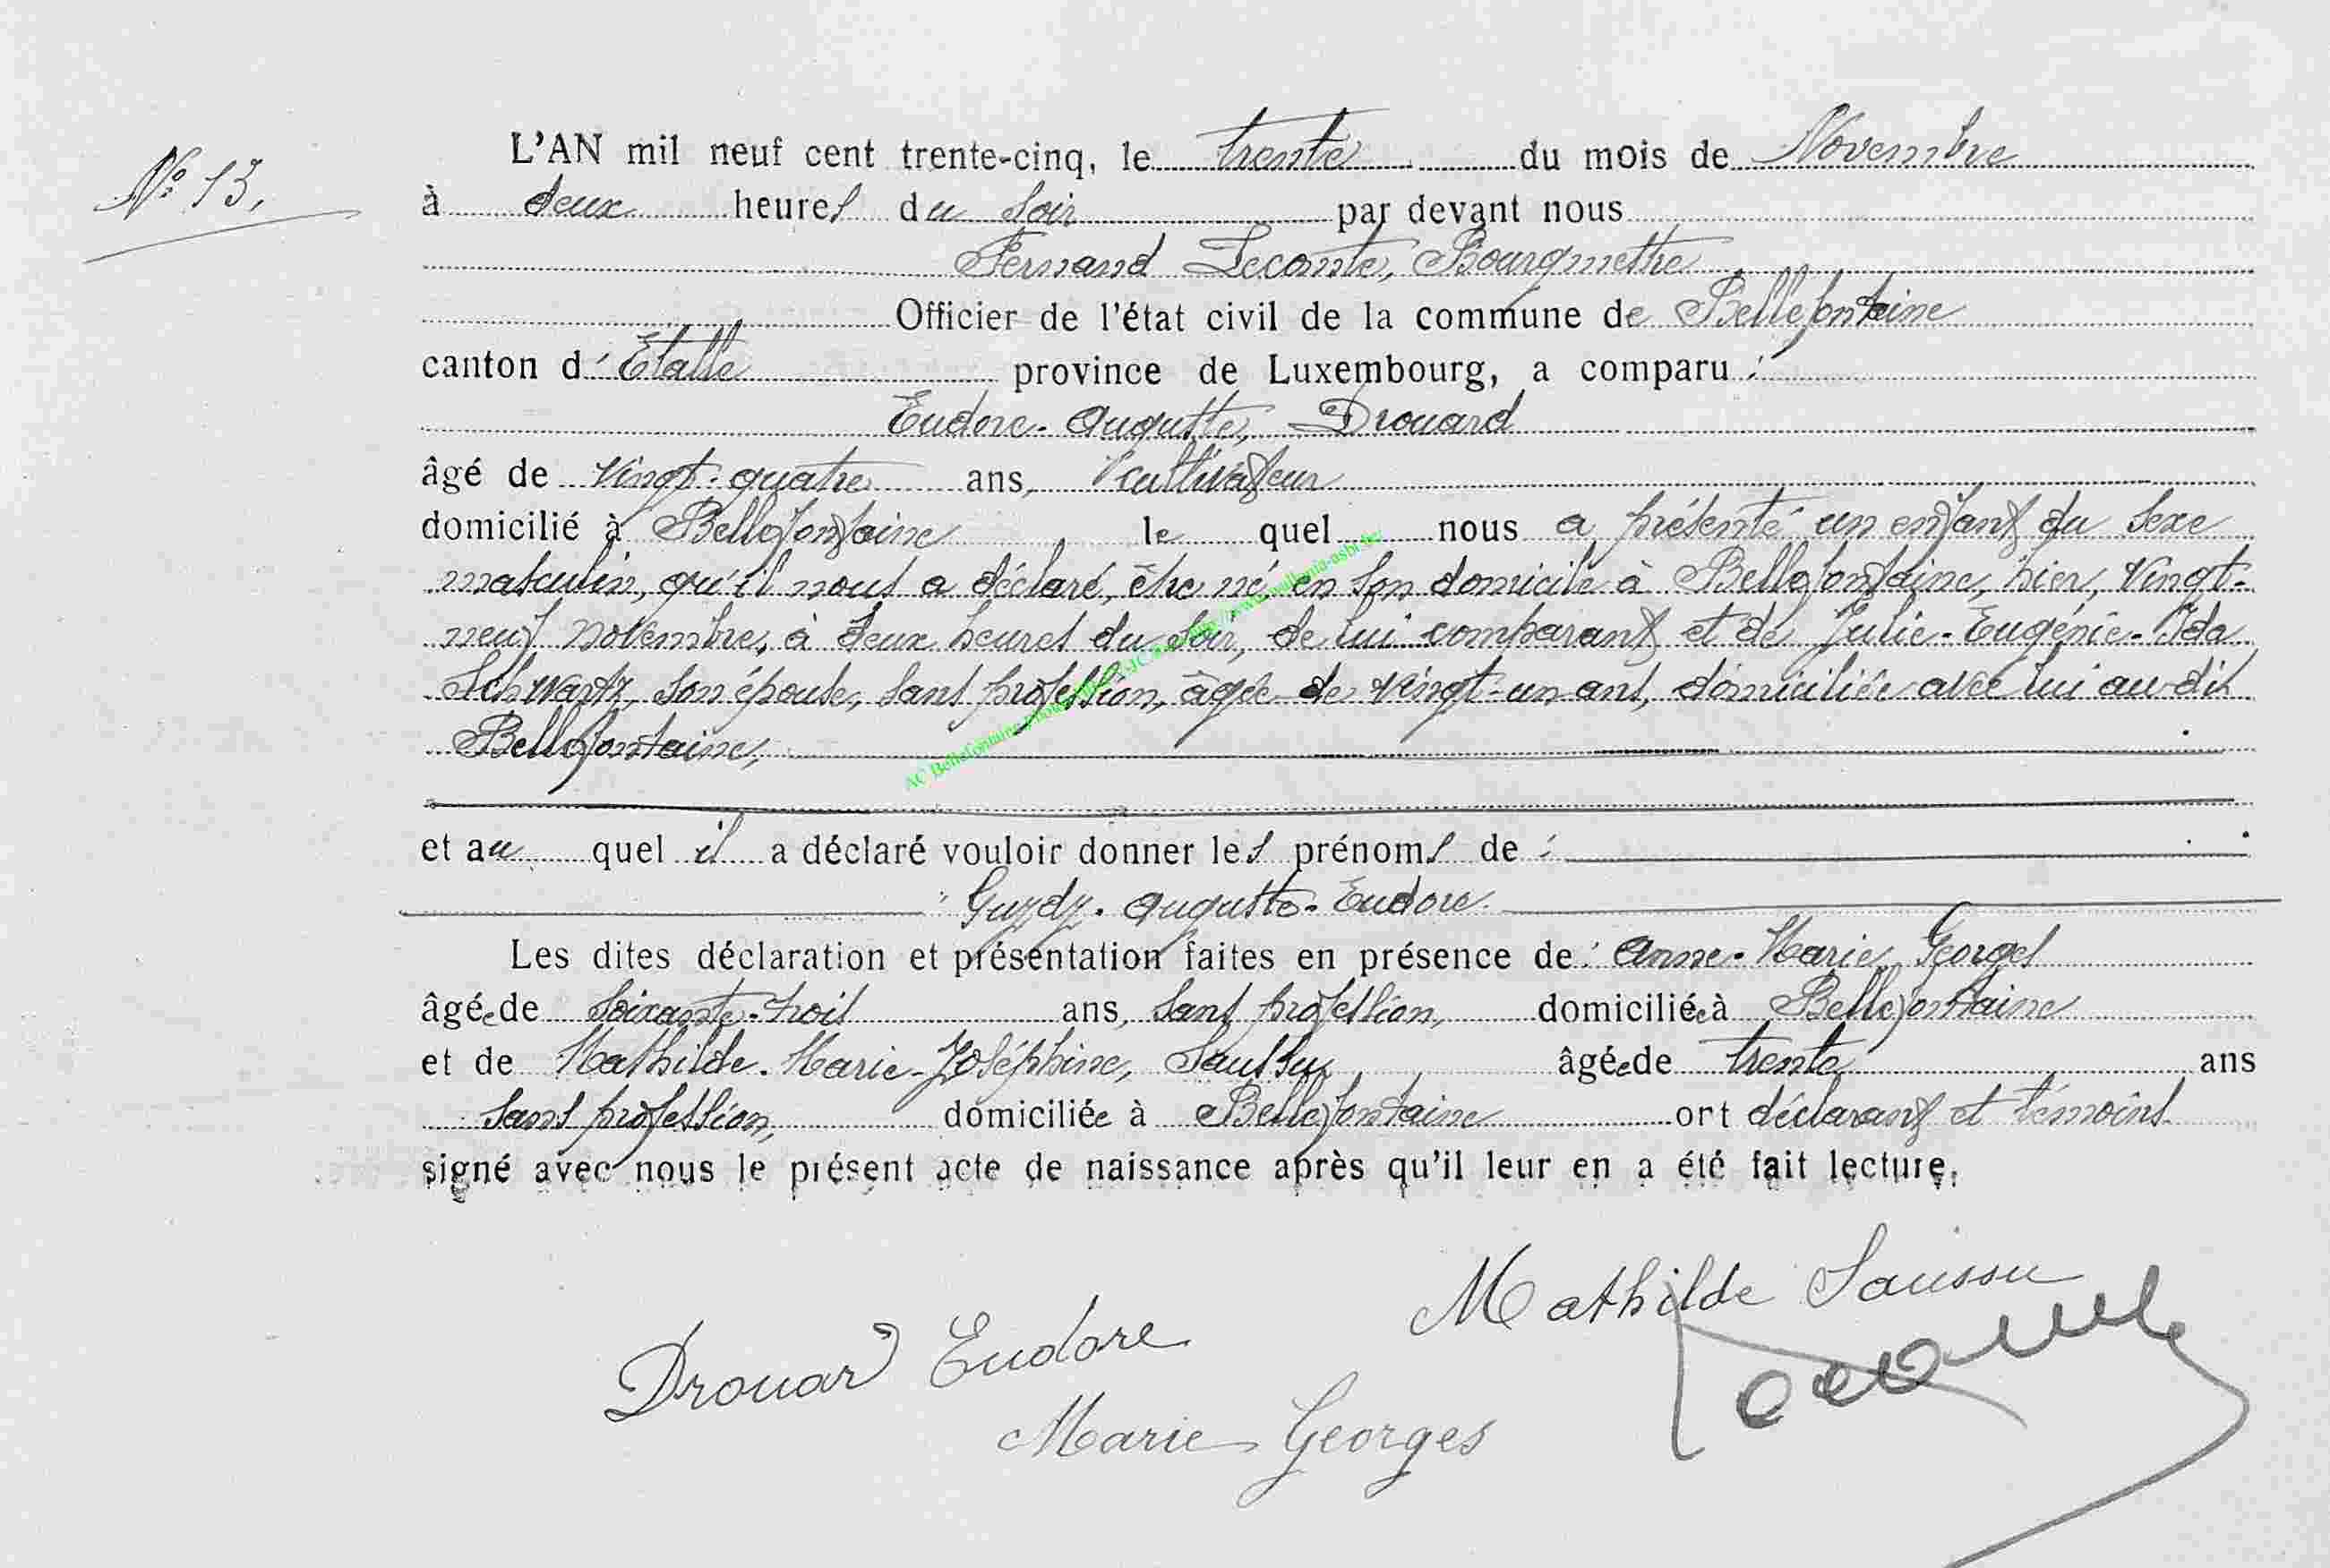 N° 13.
L'AN mil neuf cent trente-cinq, le trente du mois de Novembre
à deux heures du soir par devant nous
Fernand Leconte, Bourgmestre
Officier de l'état civil de la commune de Bellefontaine
canton d'Etalle province de Luxembourg, a comparu :
Eudore-Auguste, Drouard
âgé de vingt-quatre ans, cultivateur
domicilié à Bellefontaine, le quel nous a présenté un enfant du sexe
masculin, qu'il nous a déclaré, être né en son domicile à Bellefontaine, hier, vingt-
neuf novembre, à deux heures du soir, de lui comparant et de Julie-Eugénie-Ida
Schwartz, son épouse, sans profession, âgée de vingt-un ans, domiciliée avec lui au dit
Bellefontaine,
et au quel il a déclaré vouloir donner les prénoms de :
Guydy-Auguste-Eudore.
Les dites déclaration et présentation faites en présence de : Anne-Marie Georges
âgée de soixante-trois ans, sans profession, domiciliée à Bellefontaine
et de Mathilde-Marie-Joséphine, Saussu, âgée de trente ans
sans profession, domiciliée à Bellefontaine ont déclarant et témoins
signé avec nous le présent acte de naissance après qu'il leur en a été fait lecture.
Mathilde Saussu
Drouard Eudore
Marie Georges